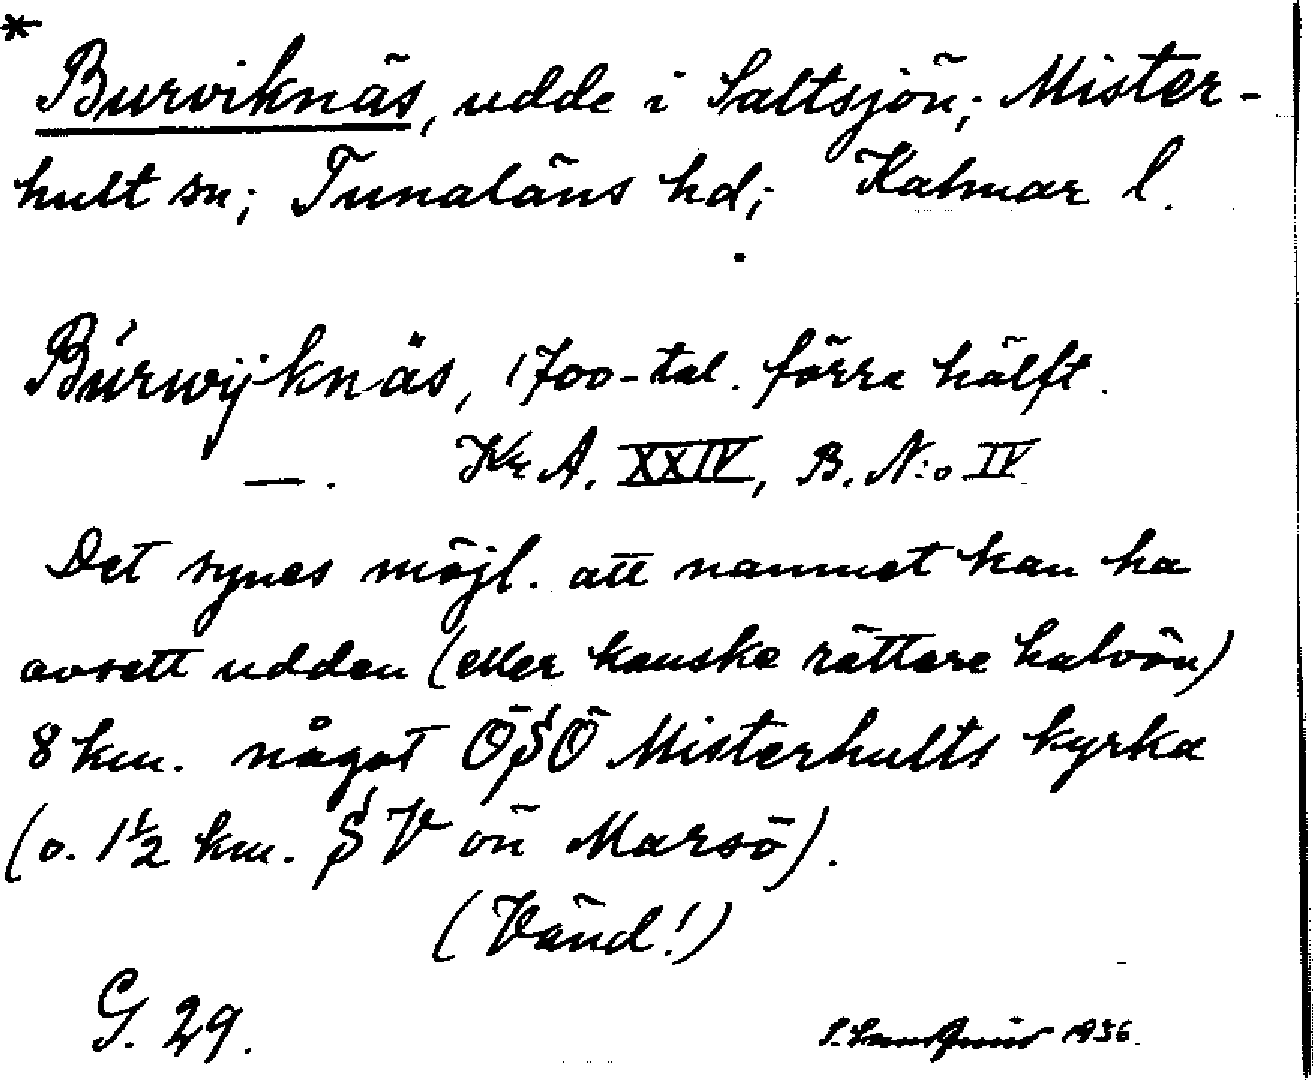 * Burviknäs, udde i Saltsjön; Mister-
hult sn; Tunaläns hd; Kalmar l.
Búrwÿknäs, 1700-tal. förra hälft.
—. KrA. XXIV, B. N:o IV
Det synes möjl. att namnet kan ha
avsett udden (eller kanske rättare halvön)
8 km. något ÖSÖ Misterhults kyrka
(o. 1½ km. SV ön Marsö).
(Vänd!)
G. 29.
1936.